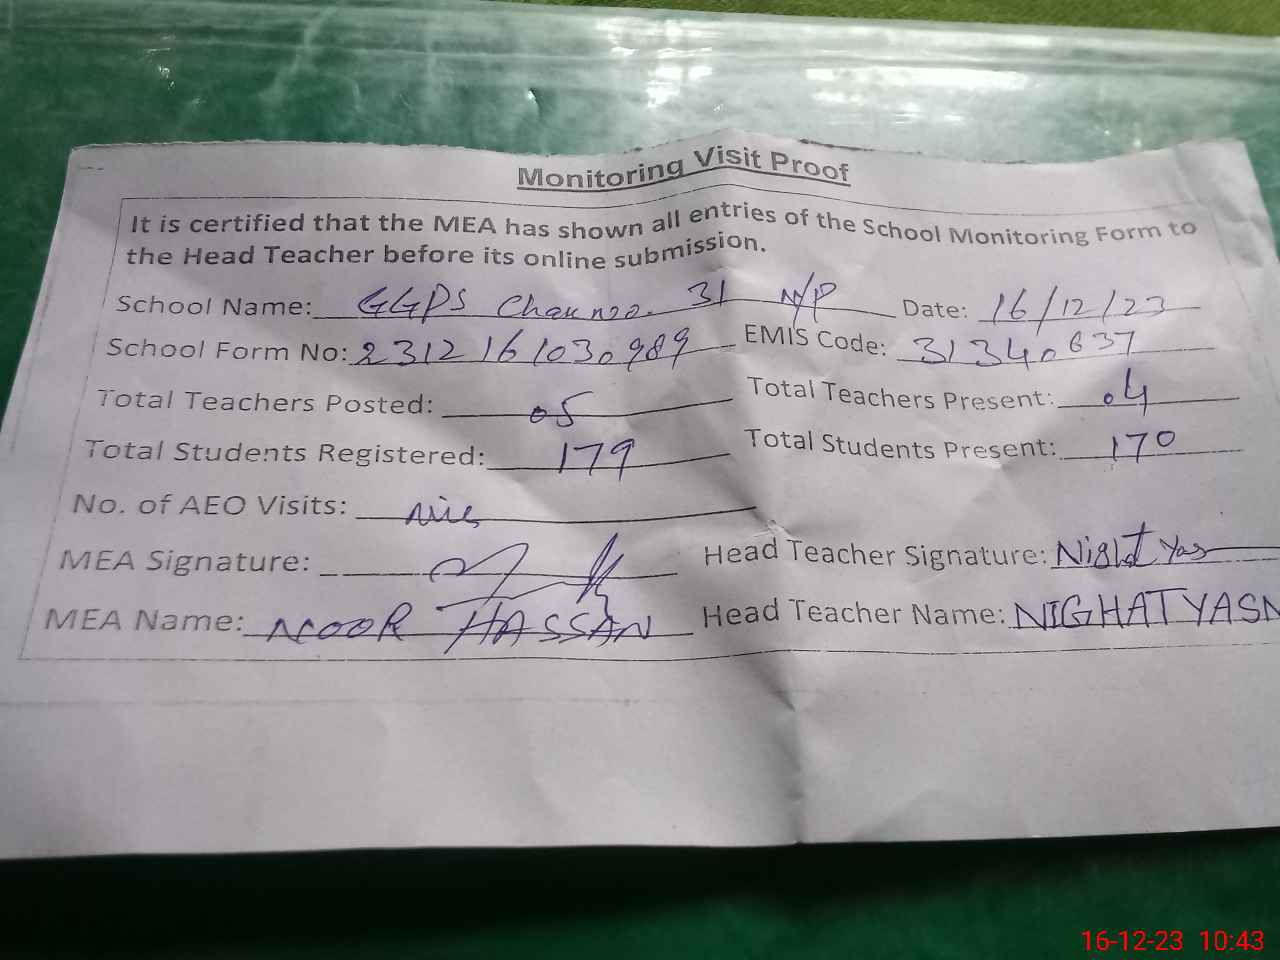 Monitoring Visit Proof
It is certified that the MEA has shown all entries of the School Monitoring Form to
the Head Teacher before its online submission.
School Name: GGPS Chak no. 31 N/P Date: 16/12/23
School Form No: 2312161030989 EMIS Code: 31340637
Total Teachers Posted: 05 Total Teachers Present: 04
Total Students Registered: 179 Total Students Present: 170
No. of AEO Visits:
MEA Signature: Head Teacher Signature: Nighat Yas
MEA Name: NOOR HASSAN Head Teacher Name: NIGHAT YASN
16-12-23 10:43